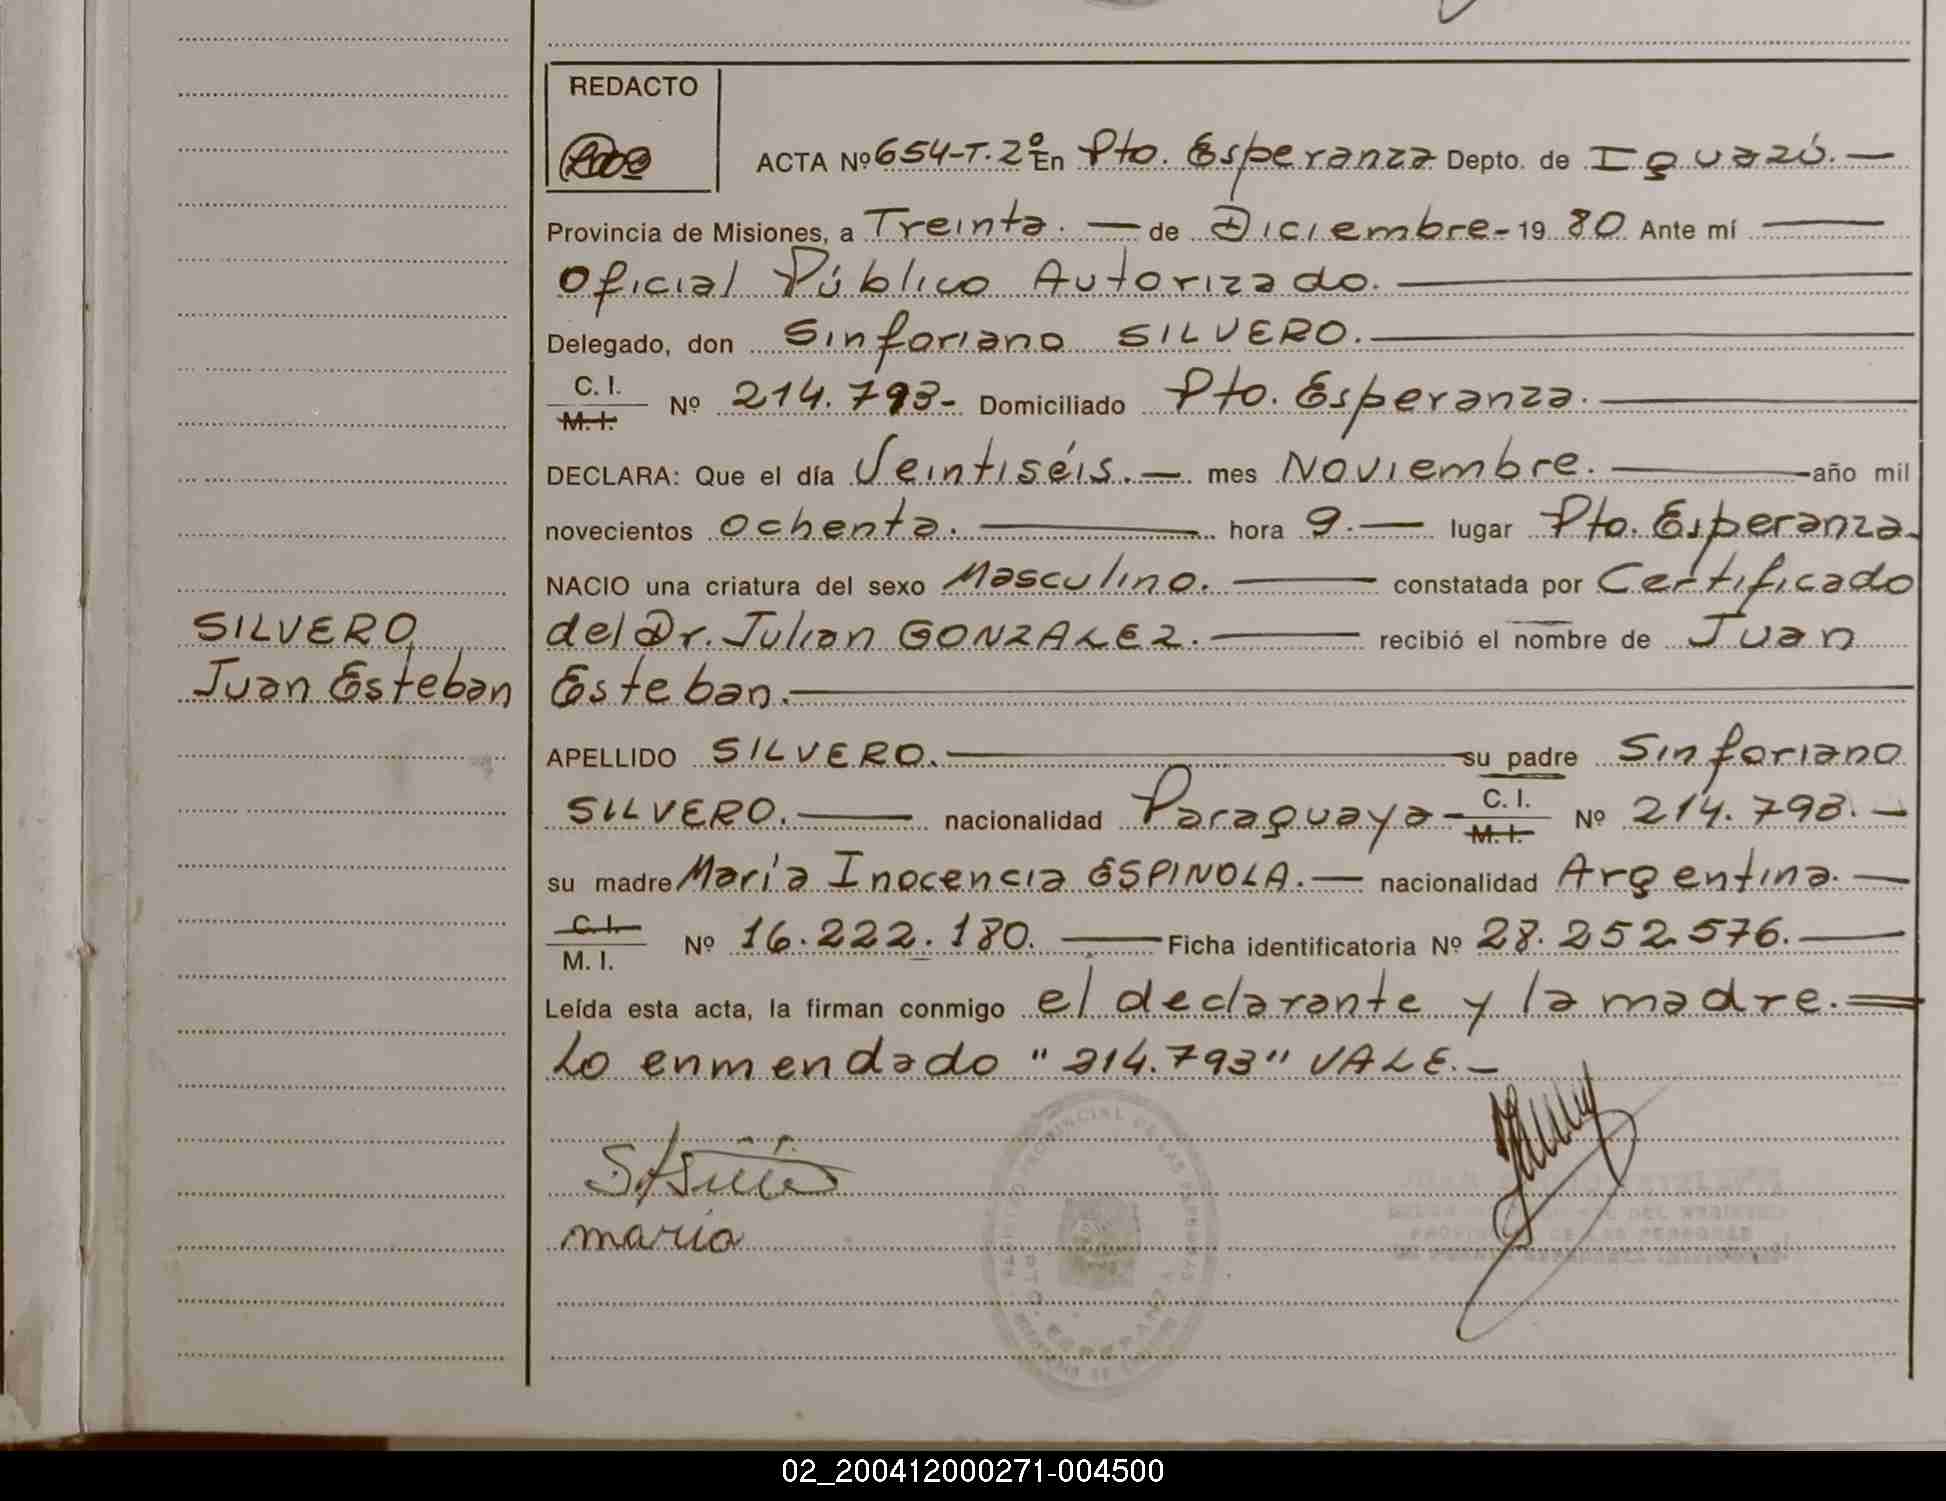 REDACTO
ACTA Nº 654-T.2º En Pto. Esperanza Depto. de Iguazú.—
Provincia de Misiones, a Treinta. — de Diciembre- 19 80 Ante mí —
Oficial Público Autorizado. —
Delegado, don Sinforiano SILVERO. —
C. I.
M. I. Nº 214.793- Domiciliado Pto. Esperanza. —
DECLARA: Que el día Veintiséis. — mes Noviembre. — año mil
novecientos ochenta. — hora 9. — lugar Pto. Esperanza.
NACIO una criatura del sexo Masculino. — constatada por Certificado
SILVERO
del Dr. Julian GONZALEZ. — recibió el nombre de Juan
Juan Esteban
Esteban. —
APELLIDO SILVERO. — su padre Sinforiano
SILVERO. — nacionalidad Paraguaya - C. I.
M. I. Nº 214.793. —
su madre María Inocencia ESPINOLA. — nacionalidad Argentina. —
C. I.
M. I. Nº 16.222.180. — Ficha identificatoria Nº 28.252.576. —
Leída esta acta, la firman conmigo el declarante y la madre. =
Lo enmendado "214.793" VALE. —
maria
02_200412000271-004500